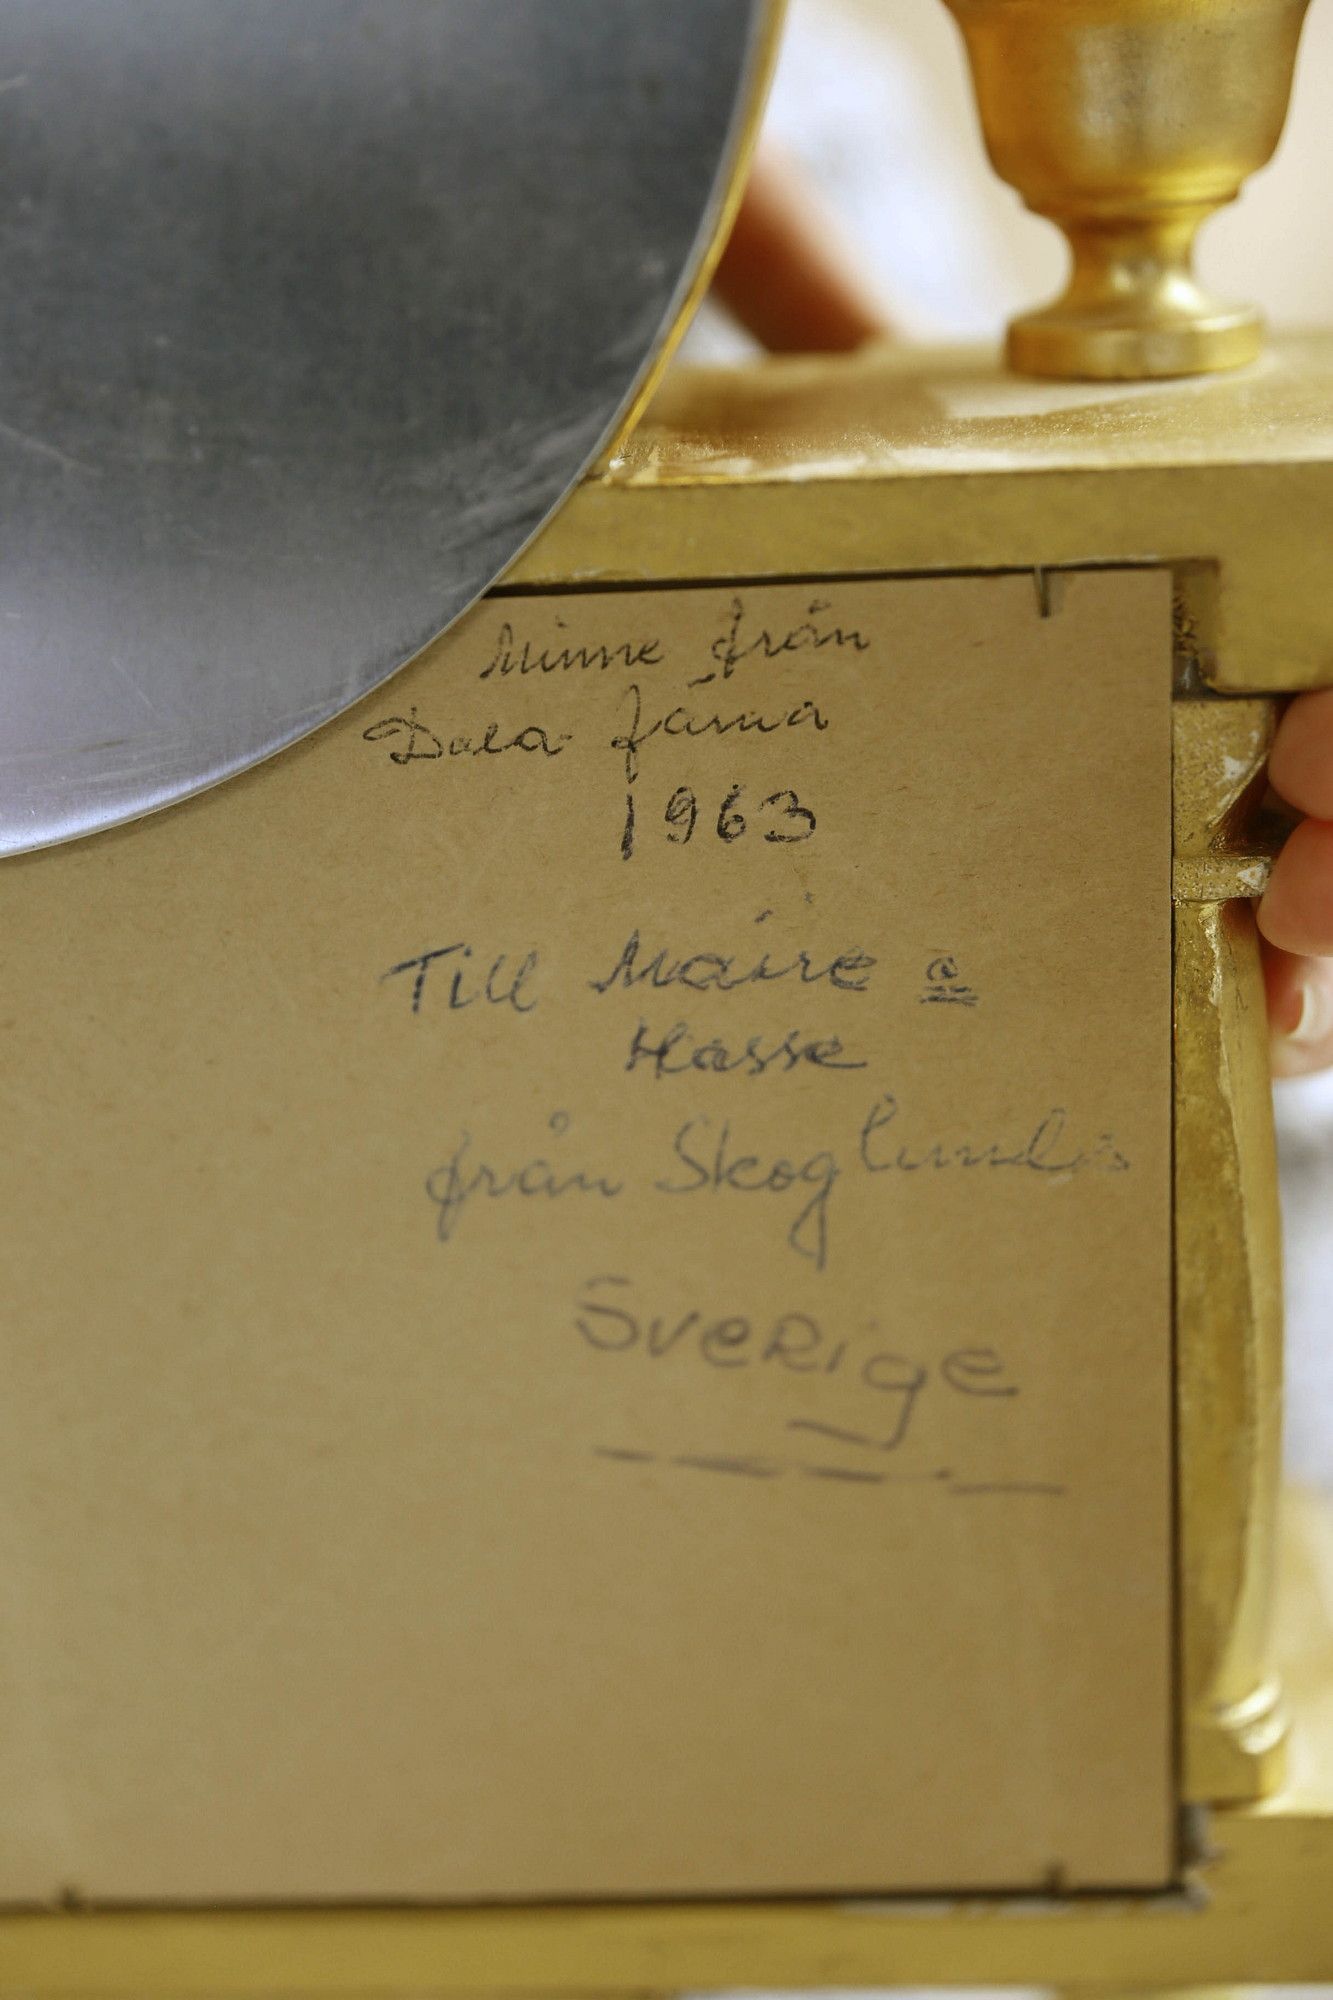 Minne från
Dala färna
1963
Till Maire o
Hasse
från Skoglunds
Sverige